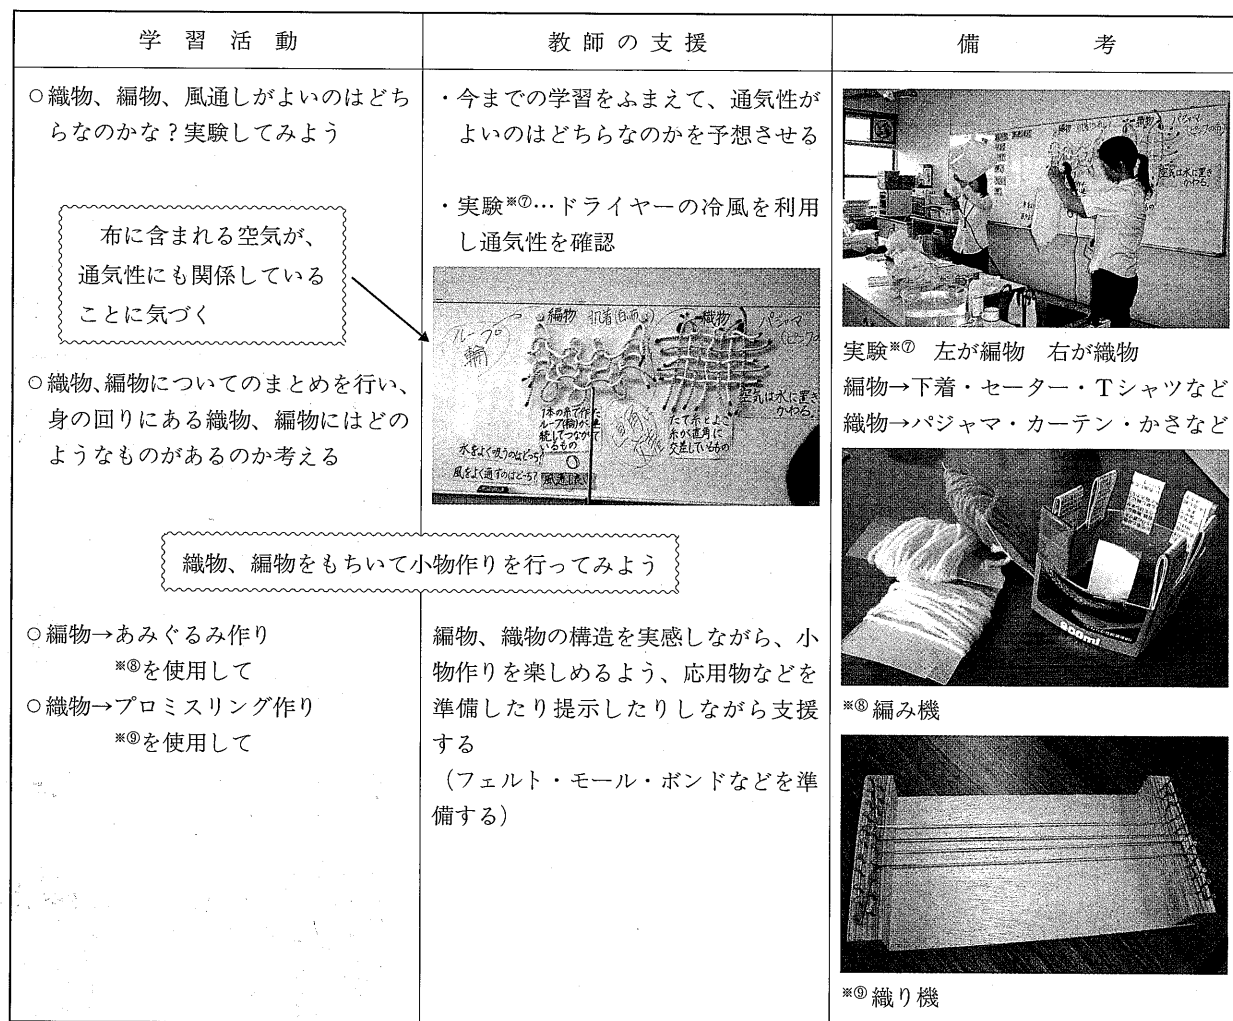 学習活動
教師の支援
備考
○織物、編物、風通しがよいのはどち
らなのかな？実験してみよう
布に含まれる空気が、
通気性にも関係している
ことに気づく
○織物、編物についてのまとめを行い、
身の回りにある織物、編物にはどの
ようなものがあるのか考える
・今までの学習をふまえて、通気性が
よいのはどちらなのかを予想させる
・実験※⑦…ドライヤーの冷風を利用
し通気性を確認
ループ
輪
編物
織物
パジャマ
空気は水に置き
かわる。
1本の糸で作た
ループ(輪)が、連
続してつながって
いるもの
たて糸とよこ
糸が直角に
交差しているもの
水をよく吸うのはどっち?
風をよく通すのはどっち?
実験※⑦ 左が編物 右が織物
編物→下着・セーター・Tシャツなど
織物→パジャマ・カーテン・かさなど
900ml
※⑧編み機
織物、編物をもちいて小物作りを行ってみよう
○編物→あみぐるみ作り
※⑧を使用して
○織物→プロミスリング作り
※⑨を使用して
編物、織物の構造を実感しながら、小
物作りを楽しめるよう、応用物などを
準備したり提示したりしながら支援
する
（フェルト・モール・ボンドなどを準
備する）
※⑨織り機